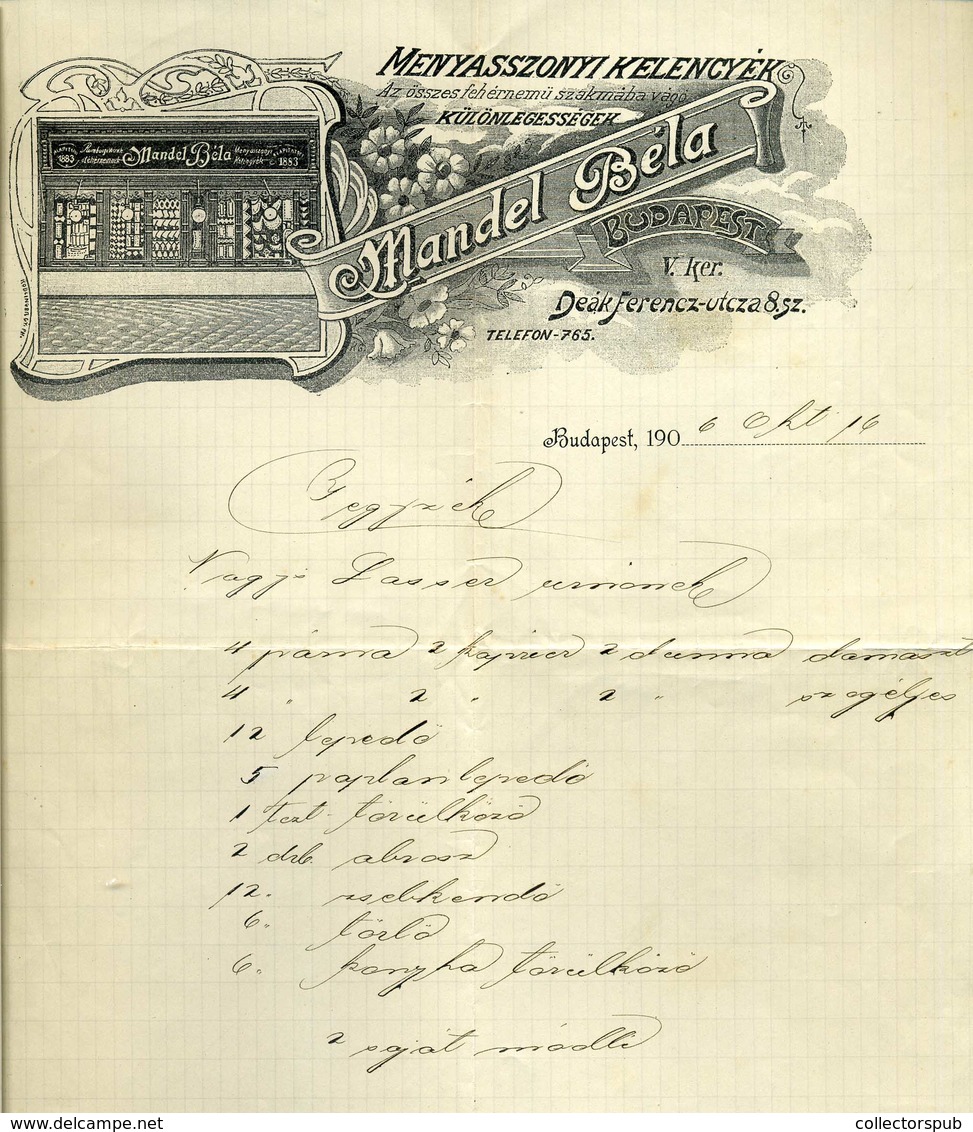 MENYASSZONYI KELENGYÉK
Az összes fehérnemü szakmába vágó
KÜLÖNLEGESSÉGEK
Mandel Béla
1883 Mandel Béla Menyasszonyi Kelengyék 1883
BUDAPEST
V. ker.
Deák Ferencz-utcza 8.sz.
TELEFON-765.
Budapest, 1906 Okt 16
Jegyzék
Nagys Lasser urnőnek
4 párna 2 kaprier 2 dunna damaszt
4 " 2 " 2 " szegélyes
12 lepedő
5 paplanlepedő
1 tczt törülköző
2 drb. abrosz
12 " zsebkendő
6 " törlő
6 " konyha törülköző
2 saját módli
www.delcampe.net
collectorspub